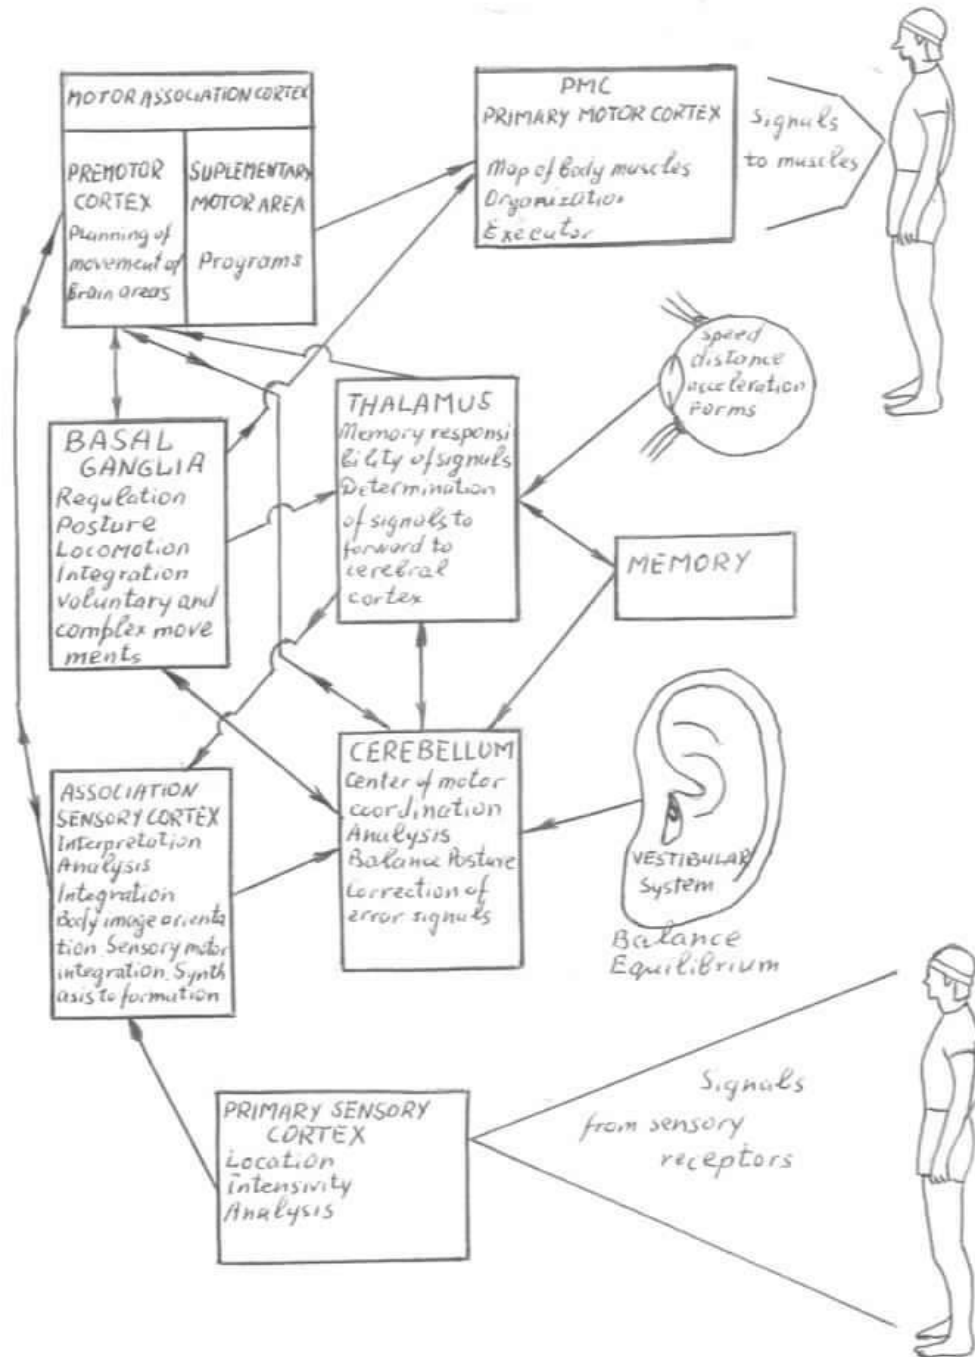 MOTOR ASSOCIATION CORTEX
PREMOTOR
CORTEX
Planning of
movement of
Brain areas
SUPLEMENTARY
MOTOR AREA
Programs
PMC
PRIMARY MOTOR CORTEX
Map of Body muscles
Organization
Executor
Signals
to muscles
speed
distance
acceleration
Forms
BASAL
GANGLIA
Regulation
Posture
Locomotion
Integration
voluntary and
complex move
ments
THALAMUS
Memory responsi
bility of signals
Determination
of signals to
forward to
cerebral
cortex
MEMORY
ASSOCIATION
SENSORY CORTEX
Interpretation
Analysis
Integration
Body image orienta
tion. Sensory motor
integration. Synth
asis to formation
CEREBELLUM
Center of motor
coordination
Analysis
Balance Posture
Correction of
error signals
VESTIBULAR
System
Balance
Equilibrium
PRIMARY SENSORY
CORTEX
Location
Intensivity
Analysis
Signals
from sensory
receptors